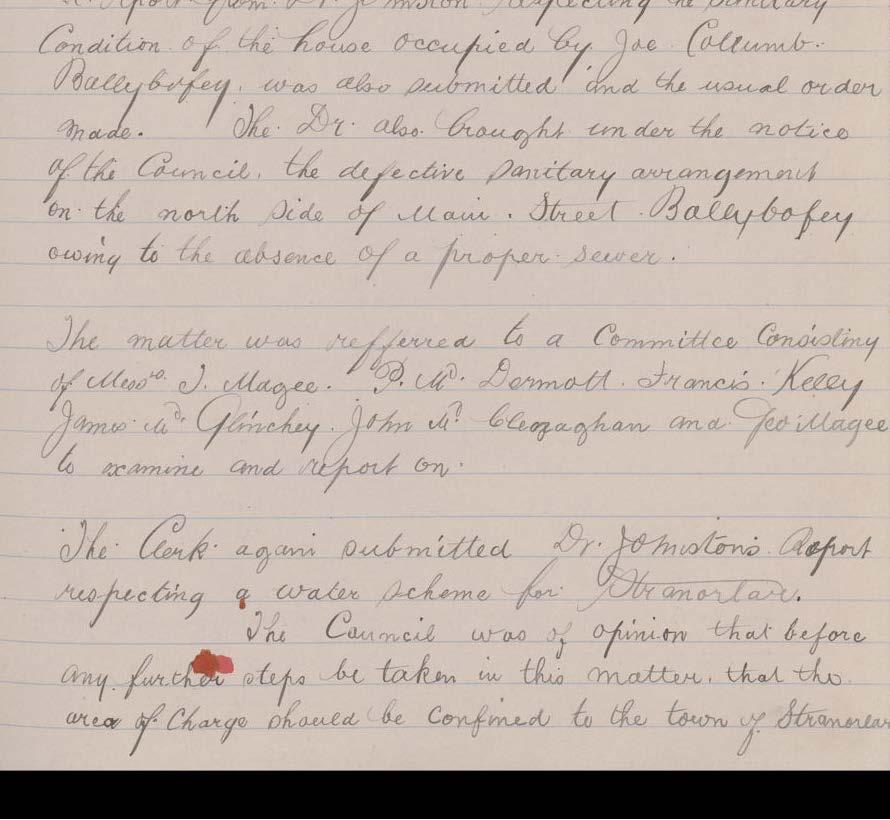 a Report from Dr. Johnston respecting the sanitary
Condition of the house occupied by Joe Collumb.
Ballybofey, was also submitted and the usual order
made. The Dr. also brought under the notice
of the Council, the defective sanitary arrangement
on the north side of Main. Street Ballybofey
owing to the absence of a proper sewer.
The matter was refferred to a Committee Consisting
of Messrs. J. Magee. P. Mc. Dermott. Francis. Kelly
James Mc. Glinchey. John Mc. and Geo Magee
to examine and report on.
The Clerk again submitted Dr. Johnston's Report
respecting a water scheme for Stranorlar.
The Council was of opinion that before
any further steps be taken in this matter, that the
area of Charge should be confined to the town of Stranorlar